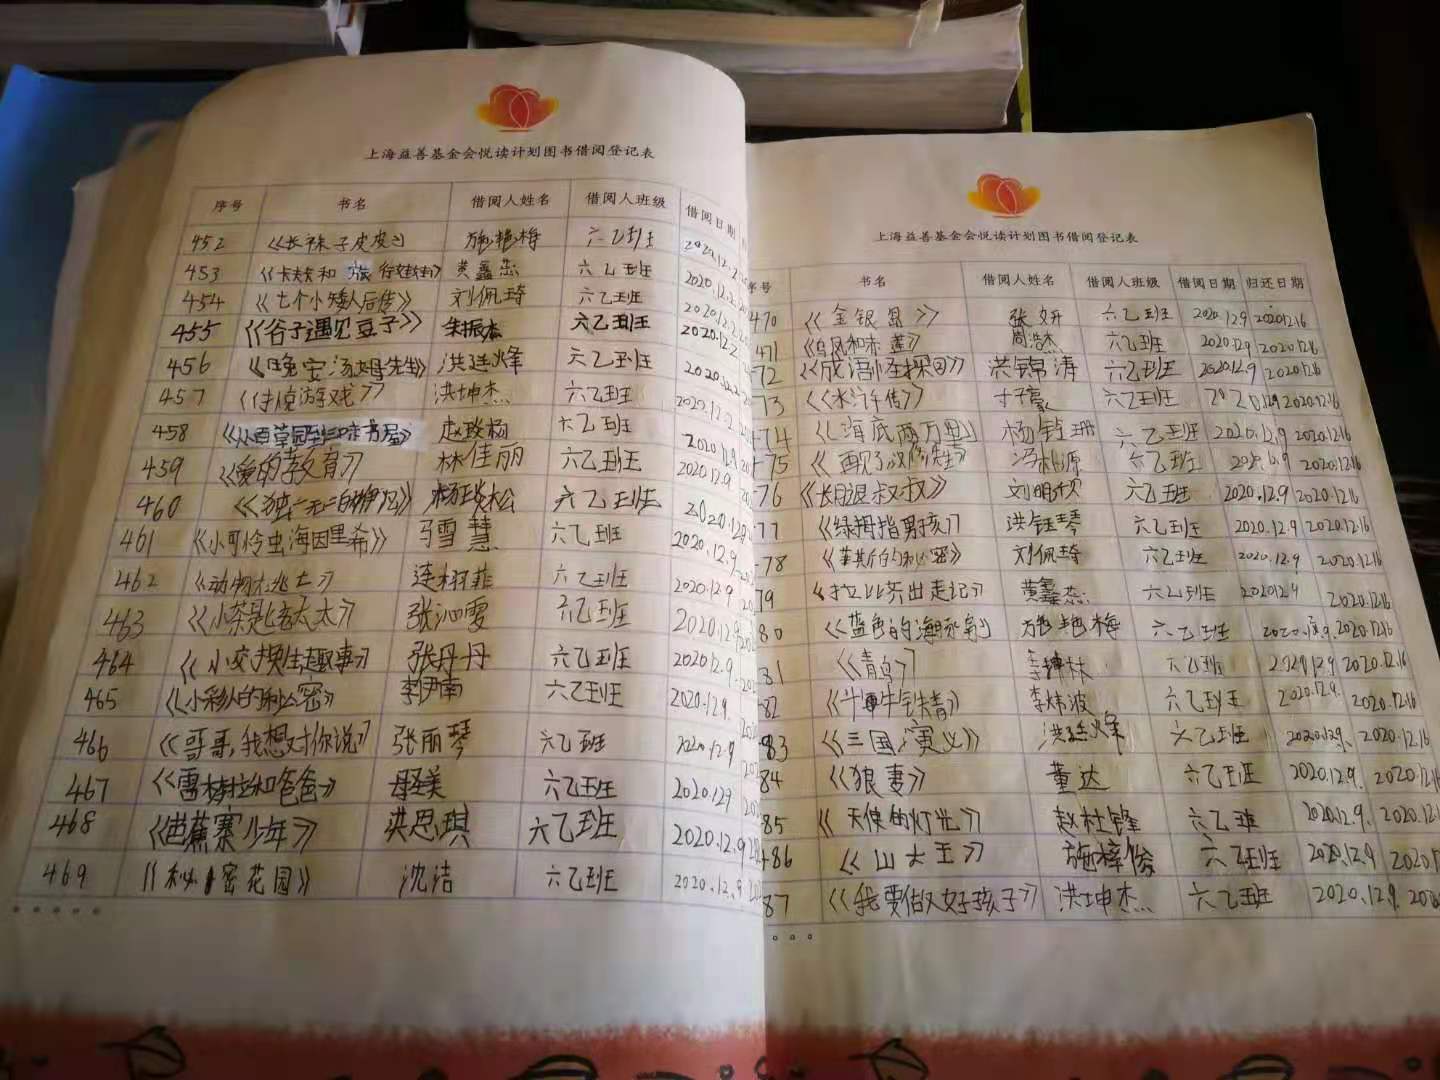 上海益善基金会悦读计划图书借阅登记表
序号 书名 借阅人姓名 借阅人班级 借阅日期
452 《长袜子皮皮》 施艳梅 六乙班 2020.12.2
453 和 黄鑫焱 六乙班 2020.12.2
454 《七个小矮人后传》 刘佩琦 六乙班 2020.12.2
455 《谷子遇见豆子》 朱振杰 六乙班 2020.12.2
456 《晚安汤姆先生》 洪延烽 六乙班 2020.12.2
457 游戏》 洪坤杰 六乙班 2020.12.2
458 《从百草园到三味书屋》 六乙班 2020.12.9
459 《爱的教育》 林佳丽 六乙班 2020.12.9
460 《独一无二的 六乙班 2020.12.9
461 《小可怜虫海因里希》 马雪慧 六乙班 2020.12.9
462 《动物大逃亡》 连栩菲 六乙班 2020.12.9
463 《小茶匙老太太》 张沁雯 六乙班 2020.12.9
464 趣事》 张丹丹 六乙班 2020.12.9
465 《小彩人的秘密》 李伊南 六乙班 2020.12.9.
466 《哥哥,我想对你说》 张丽琴 六乙班 2020.12.9
467 和爸爸》 六乙班 2020.12.9
468 《芭蕉寨少年》 洪思琪 六乙班 2020.12.9
469 《秘密花园》 沈洁 六乙班 2020.12.9
上海益善基金会悦读计划图书借阅登记表
序号 书名 借阅人姓名 借阅人班级 借阅日期 归还日期
470 《金银岛》 张妍 六乙班 2020.12.9 2020.12.16
471 《乌凤和赤莲》 周浩杰 六乙班 2020.12.9 2020.12.16
72 《成语怪探团》 洪锦涛 六乙班 2020.12.9 2020.12.16
73 《水浒传》 六乙班 2020.12.9 2020.12.16
74 《海底两万里》 杨 六乙班 2020.12.9 2020.12.16
75 《再见了 先生》 冯桃源 六乙班 2020.12.9 2020.12.16
76 《长腿叔叔》 刘明欣 六乙班 2020.12.9 2020.12.16
77 《绿拇指男孩》 洪钰琴 六乙班 2020.12.9 2020.12.16
78 的秘密》 刘佩琦 六乙班 2020.12.9 2020.12.16
79 《拉比齐出走记》 黄鑫焱 六乙班 2020.12.9 2020.12.16
80 《蓝色的海豚岛》 施艳梅 六乙班 2020.12.9. 2020.12.16
81 《青鸟》 李坤林 六乙班 2020.12.9 2020.12.16
82 李炜波 六乙班 2020.12.9. 2020.12.16
83 《三国演义》 洪延烽 六乙班 2020.12.9. 2020.12.16
84 《狼妻》 董达 六乙班 2020.12.9. 2020.12.16
85 《天使的灯光》 赵杜锋 六乙班 2020.12.9. 2020.12.1
486 《山大王》 施梓俊 六乙班 2020.12.9
87 《我要做好孩子》 洪坤杰 六乙班 2020.12.9.